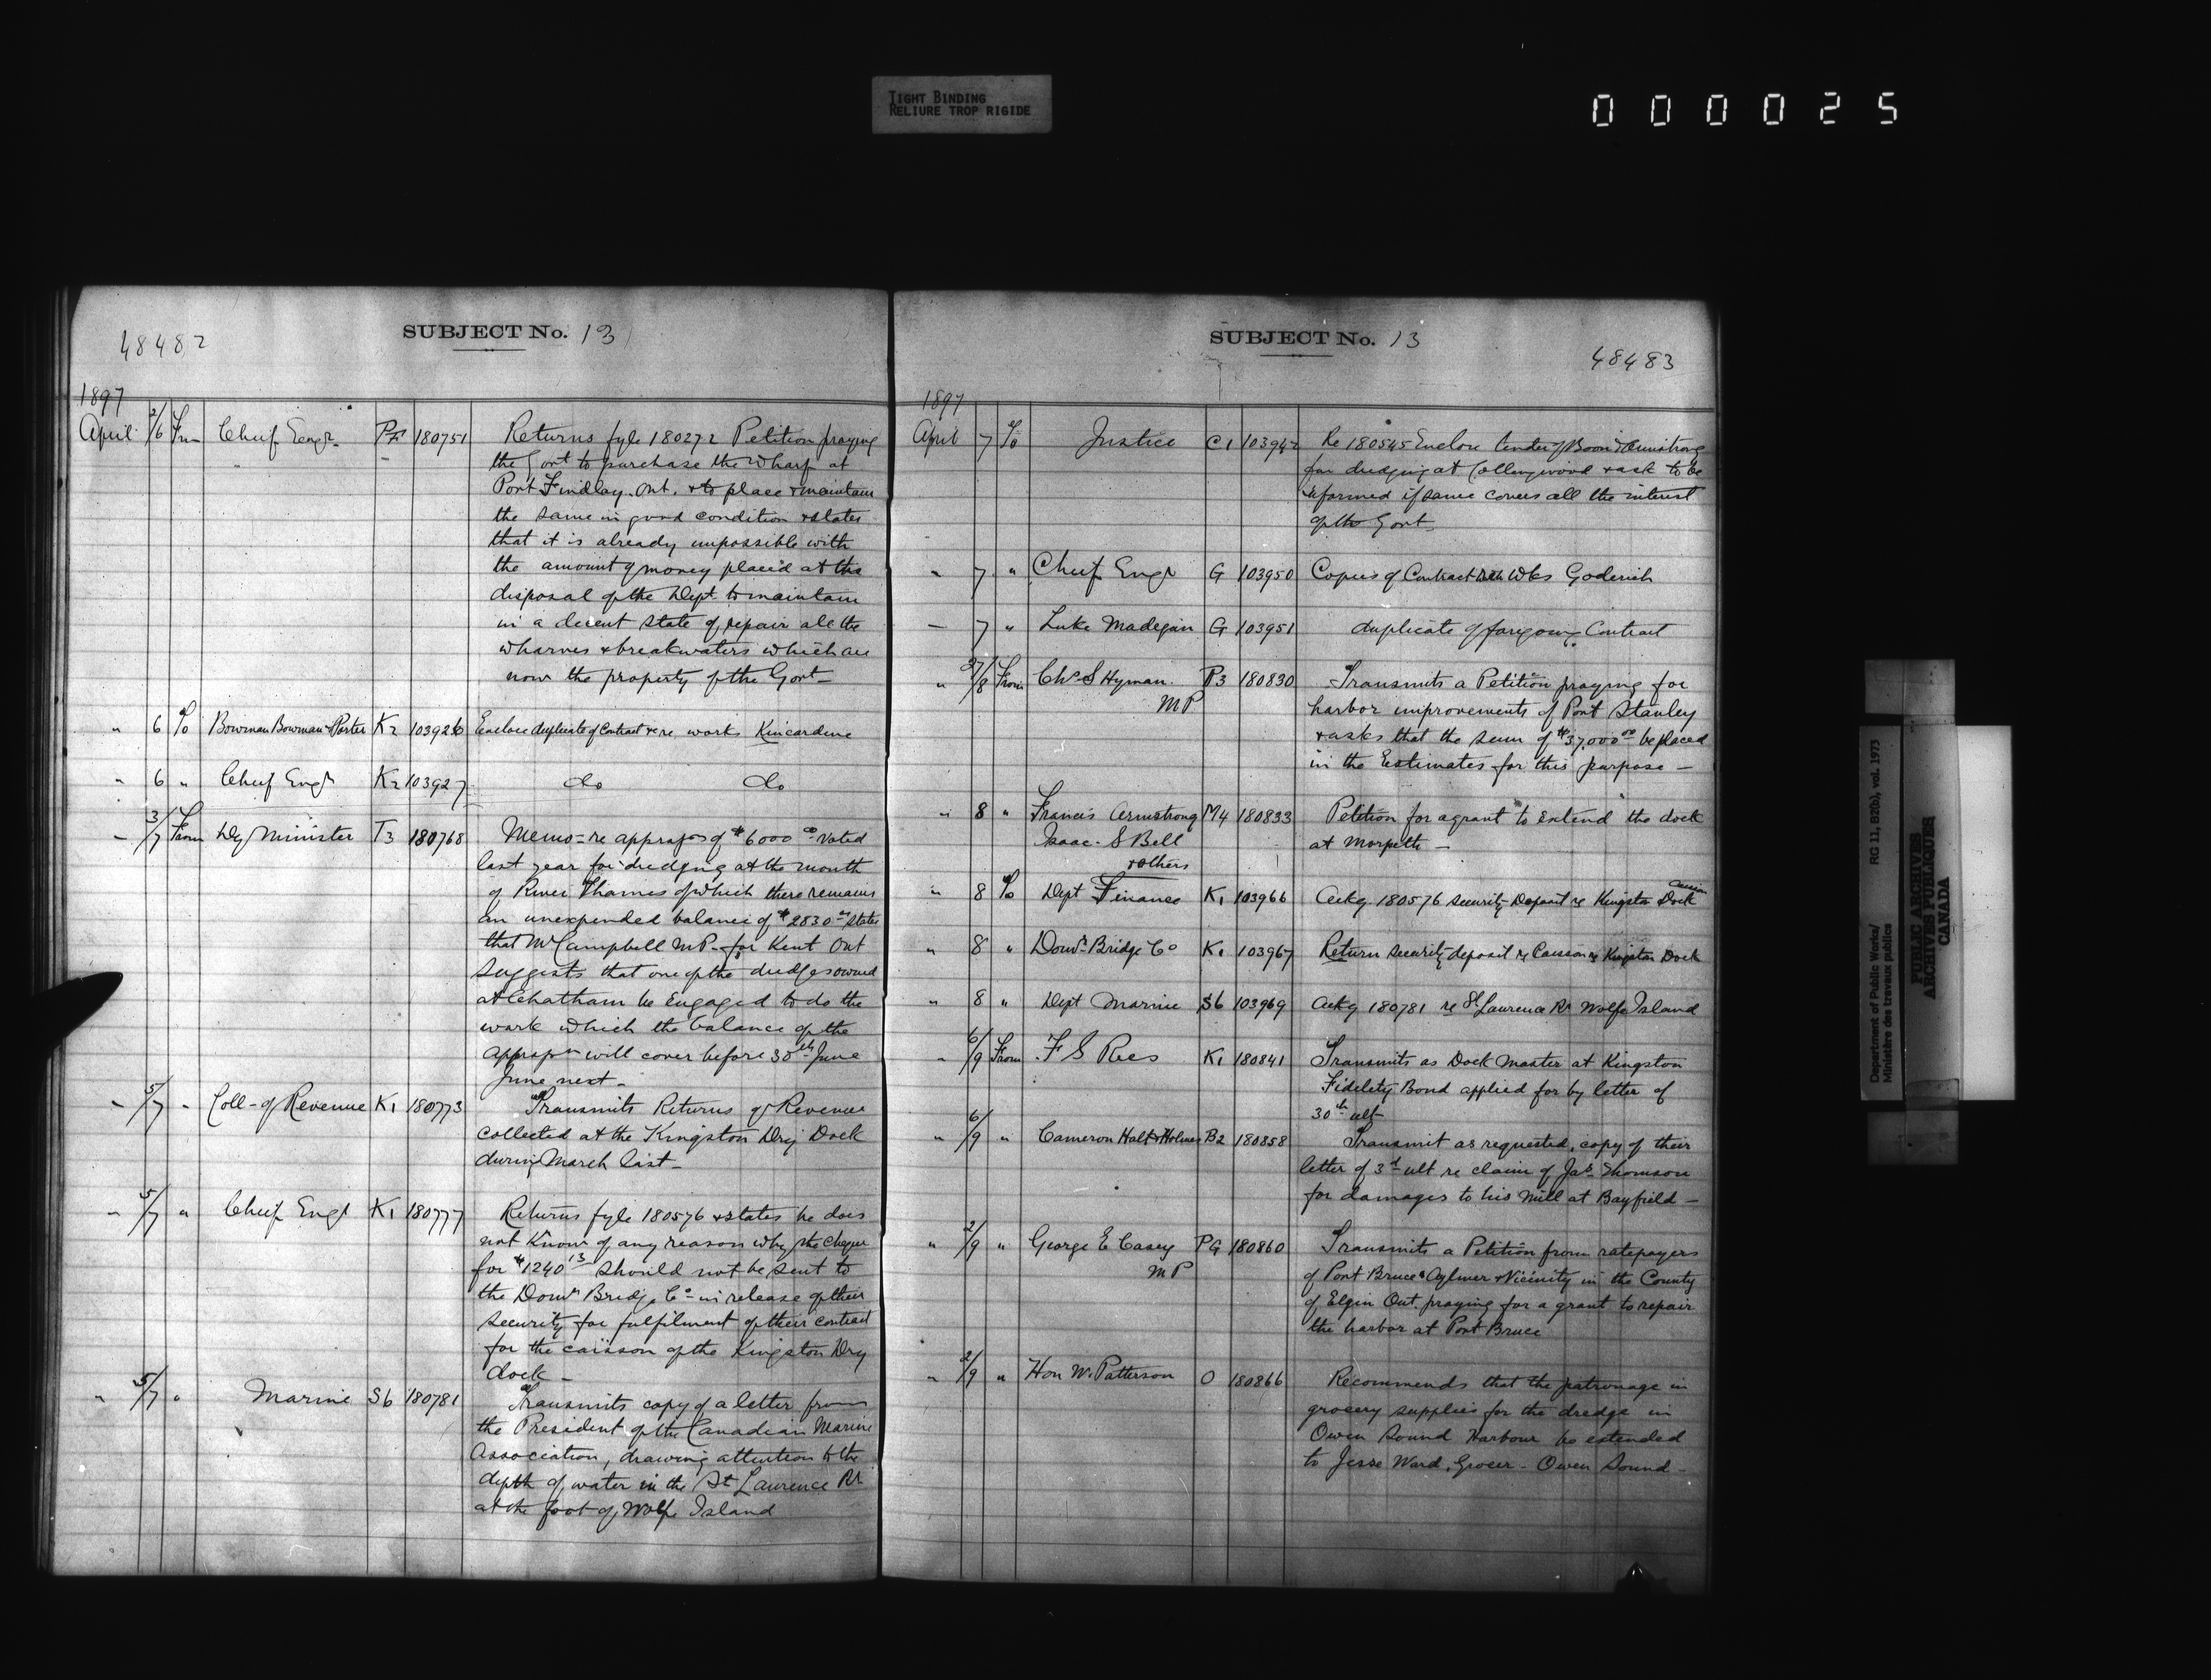 TIGHT BINDING
RELIURE TROP RIGIDE
000025
48482
SUBJECT No. 13
1897
April 2/6 Frm Chief Engr PF 180751 Returns fyle 180272 Petition praying
the Govt to purchase the Wharf at
Port Findlay. Ont. & to place & maintain
the same in good condition & states
that it is already impossible with
the amount of money placed at the
disposal of the Dept to maintain
in a decent state of repair all the
wharves & breakwaters which are
now the property of the Govt
" 6 To Bowman Bowman & Porter K2 103926 Enclose duplicate of Contract re works Kincardine
" 6 " Chief Engr K2 103927 do do
" 3/7 From Dy Minister T3 180768 Memo - re approp of $6000 00 voted
last year for dredging at the mouth
of River Thames of which there remains
an unexpended balance of $2830 states
that Mr Campbell M.P. for Kent Ont
suggests that one of the dredges owned
at Chatham be Engaged to do the
work which the balance of the
appropn will cover before 30th June
June next -
" 5/7 " Coll - of Revenue K1 180773 Transmits Returns of Revenue
collected at the Kingston Dry Dock
during March last -
" 5/7 " Chief Engr K1 180777 Returns fyle 180576 & states he does
not know of any reason why the cheque
for $1240 13 should not be sent to
the Domn Bridge Co in release of their
security for fulfilment of their contract
for the caisson of the Kingston Dry
dock -
" 5/7 " Marine S6 180781 Transmits copy of a letter from
the President of the Canadian Marine
Association, drawing attention to the
depth of water in the St Laurence Rr
at the foot of Wolfe Island
SUBJECT No. 13
48483
1897
April 7 To Justice C1 103942 Re 180545 Enclose tender of Boon & Armstrong
for dredging at Collingwood & ask to be
informed if same covers all the interest
of the Govt
" 7 " Chief Engr G 103950 Copies of Contract Wks Goderich
" 7 " Luke Madegan G 103951 duplicate of foregoing Contract
" 27/8 From Chs S Hyman P3 180830 Transmits a Petition praying for
M P harbor improvements of Port Stanley
& asks that the sum of $37,000 00 be placed
in the Estimates for this purpose -
" 8 " Francis Armstrong M4 180833 Petition for a grant to extend the dock
Isaac. S Bell at Morpeth -
& others
" 8 To Dept Finance K1 103966 Ackg 180576 security Deposit re Kingston Caisson Dock
" 8 " Domn Bridge Co K1 103967 Return security deposit re Caisson re Kingston Dock
" 8 " Dept Marine S6 103969 Ackg 180781 re St Laurence Rr Wolfe Island
" 6/9 From F S Rees K1 180841 Transmits as Dock Master at Kingston
Fidelity Bond applied for by letter of
30th ult
" 6/9 " Cameron Holt & Holmes B2 180858 Transmit as requested, copy of their
letter of 3d ult re claim of Jas Thomson
for damages to his Mill at Bayfield -
" 2/9 " George E Casey PG 180860 Transmits a Petition from ratepayers
M P of Port Bruce & Aylmer & Vicinity in the County
of Elgin Ont. praying for a grant to repair
the harbor at Port Bruce
" 2/9 " Hon W. Patterson O 180866 Recommends that the patronage in
grocery supplies for the dredge in
Owen Sound Harbour be extended
to Jesse Ward, Grocer - Owen Sound -
Department of Public Works/ RG 11, B2(b), vol. 1973
Ministère des travaux publics
PUBLIC ARCHIVES
ARCHIVES PUBLIQUES
CANADA